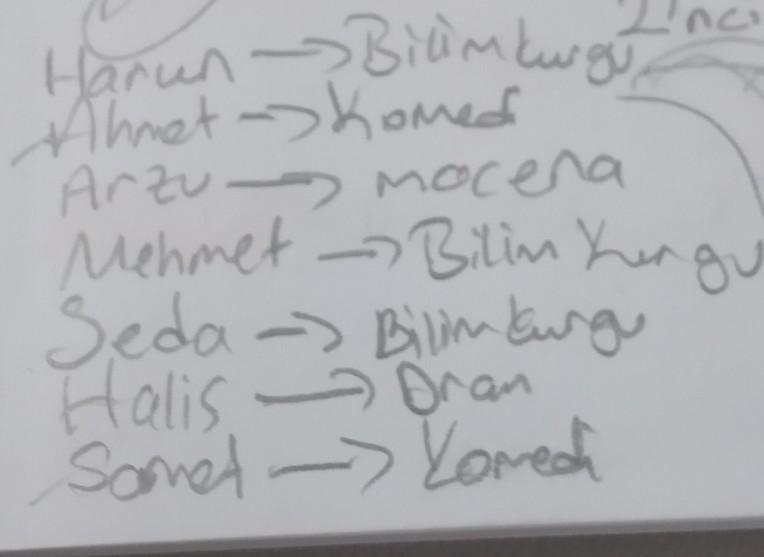 2'nci
Harun → Bilimkurgu
Ahmet → Komedi
Arzu → macera
Mehmet → Bilim Kurgu
Seda → Bilimkurgu
Halis → Dram
Samet → Komedi